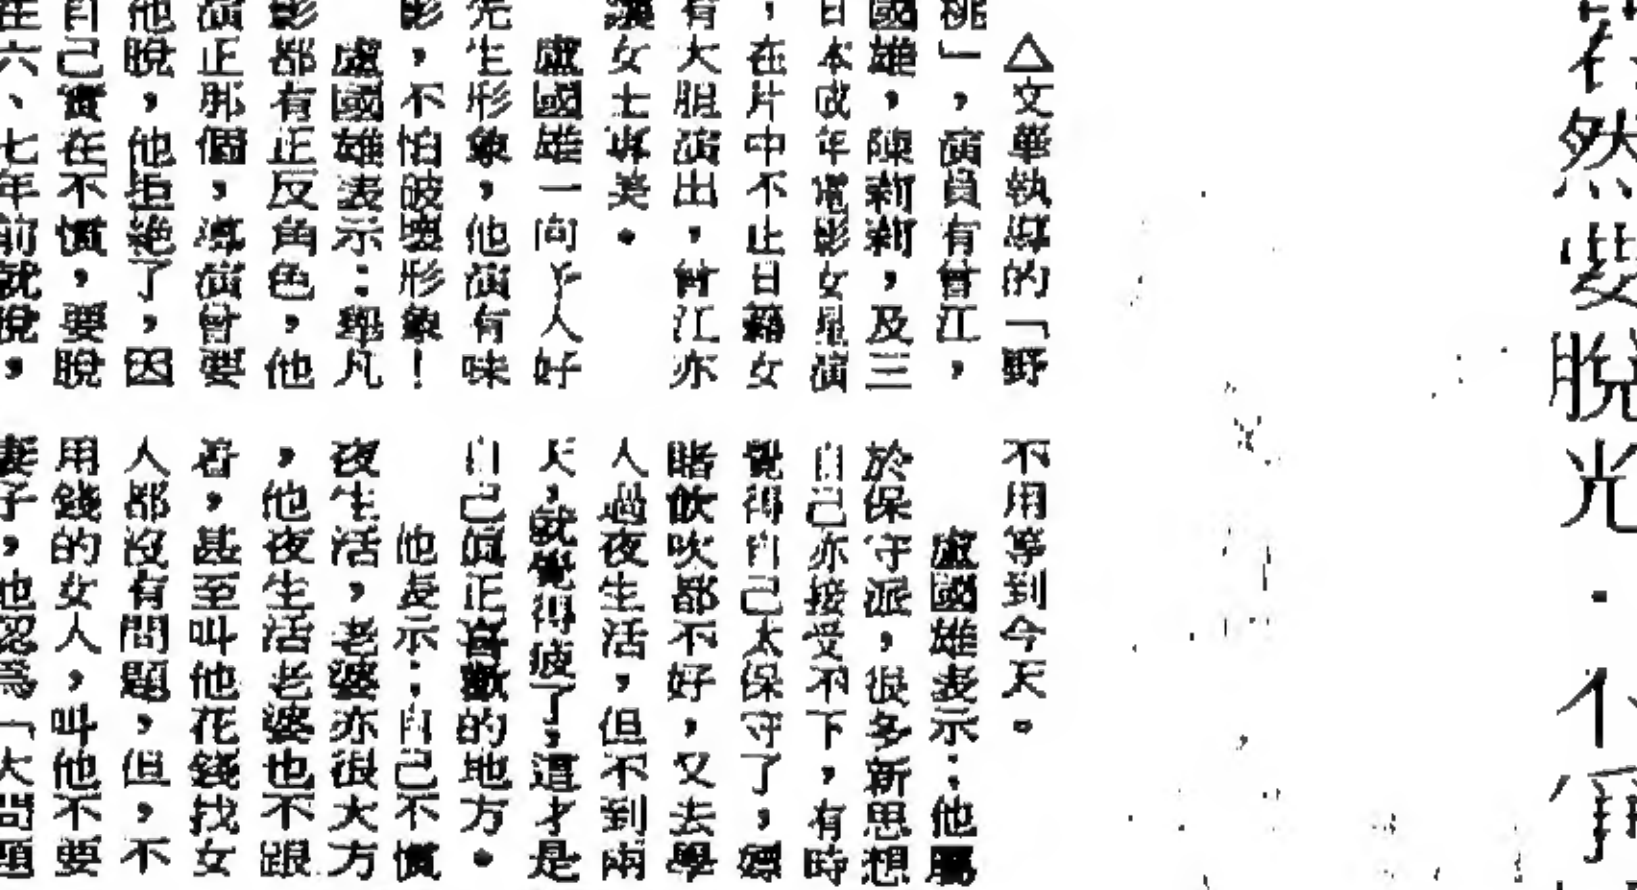 若然要脫光・不
△文華執導的「野
桃」，演員有曾江，
國雄，陳莉莉，及三
日本成年電影女星演
，在片中不止日籍女
有大胆演出，曾江亦
讓女士專美。
盧國雄一向予人好
先生形象，他演有味
影，不怕破壞形象！
盧國雄表示：舉凡
影都有正反角色，他
演正那個，導演曾要
他脫，他拒絕了，因
自己實在不慣，要脫
在六、七年前就脫，
不用等到今天。
盧國雄表示；他屬
於保守派，很多新思想
自己亦接受不下，有時
覺得自己太保守了，嫖
賭飲吹都不好，又去學
人過夜生活，但不到兩
天，就覺得疲了，這才是
自己眞正喜歡的地方。
他表示；自己不慣
夜生活，老婆亦很大方
，他夜生活老婆也不跟
着，甚至叫他花錢找女
人都沒有問題，但，不
用錢的女人，叫他不要
妻子，他認爲「大問題